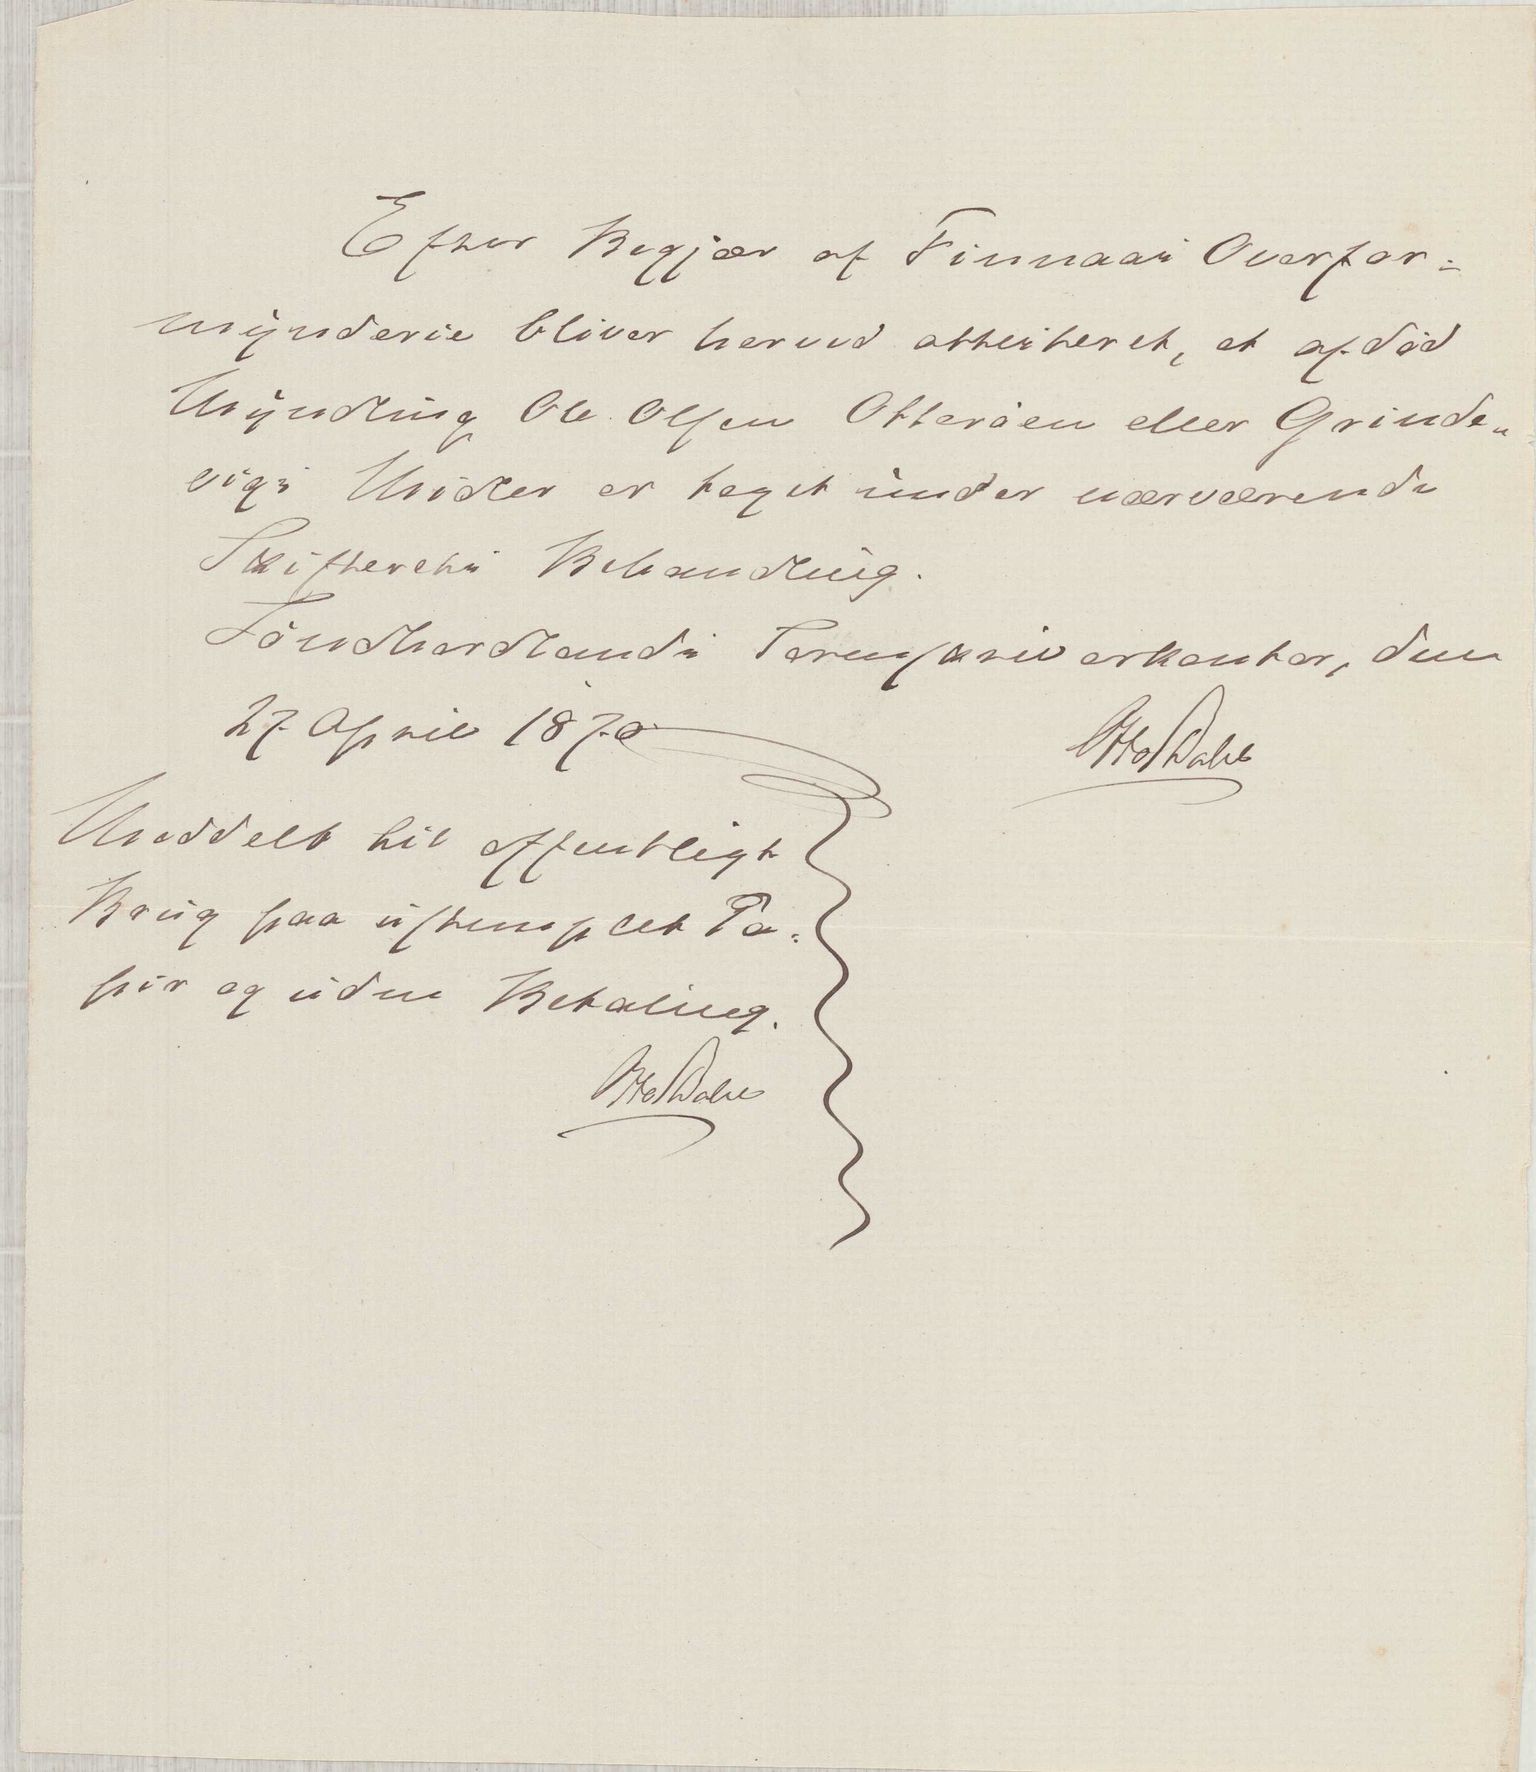 Efter Begjær af Finnaas Overfor-
mynderie bliver herved attesteret, at afdød
Myndling Ole Olsen Otterøen eller Grinde-
vigs Midler er taget under nærværende
Skifterets Behandling.
Søndhordlands Sorenskriverkontor, den
27 April 1870
Otto Dahl
Meddelt til offentligt
Brug paa ustemplet Pa-
pir og uden Betaling.
Otto Dahl